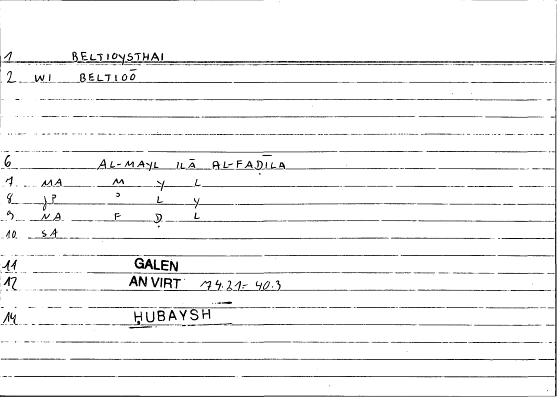 1 BELTIOYSTHAI
2 WI BELTIOŌ
6 AL-MAYL ILĀ AL-FAḌĪLA
7 MA M Y L
8 JP ʾ L Y
9 NA F Ḍ L
10 SA
11 GALEN
12 AN VIRT 74.21- 40.3
14 ḤUBAYSH